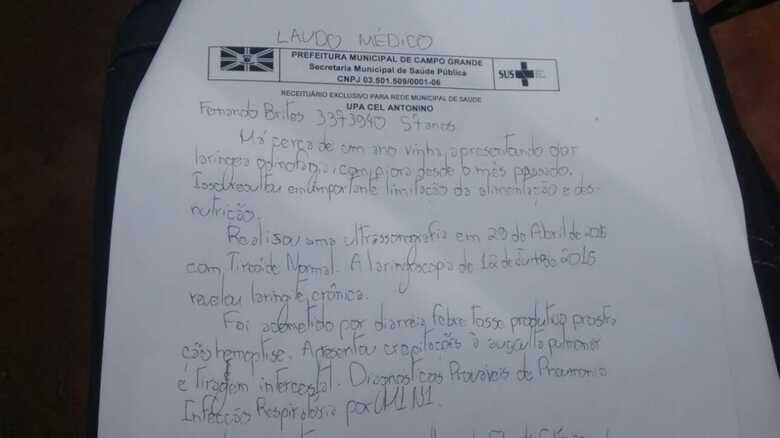 LAUDO MÉDICO
PREFEITURA MUNICIPAL DE CAMPO GRANDE
Secretaria Municipal de Saúde Pública
CNPJ 03.501.509/0001-06
SUS
RECEITUÁRIO EXCLUSIVO PARA REDE MUNICIPAL DE SAÚDE
UPA CEL ANTONINO
Fernando Britos 3373940 57 anos
Há cerca de um ano vinha apresentando dor
laringea odinofagia, com piora desde o mês passado.
Isso resultou em importante limitação da alimentação e des-
nutrição.
Realisou uma ultrassonografia em 29 de Abril de
com Tireóide Normal. A laringoscopia de 12 de 2015
revelou laringite crônica.
Foi acometido por diarreia febre tosse produtiva prostra
ção hemoptise. Apresentou crepitações à ausculta pulmonar
é tiragem intercostal. Diagnosticos Provaveis de Pneumonia
Infecção Respiratória por H1N1.